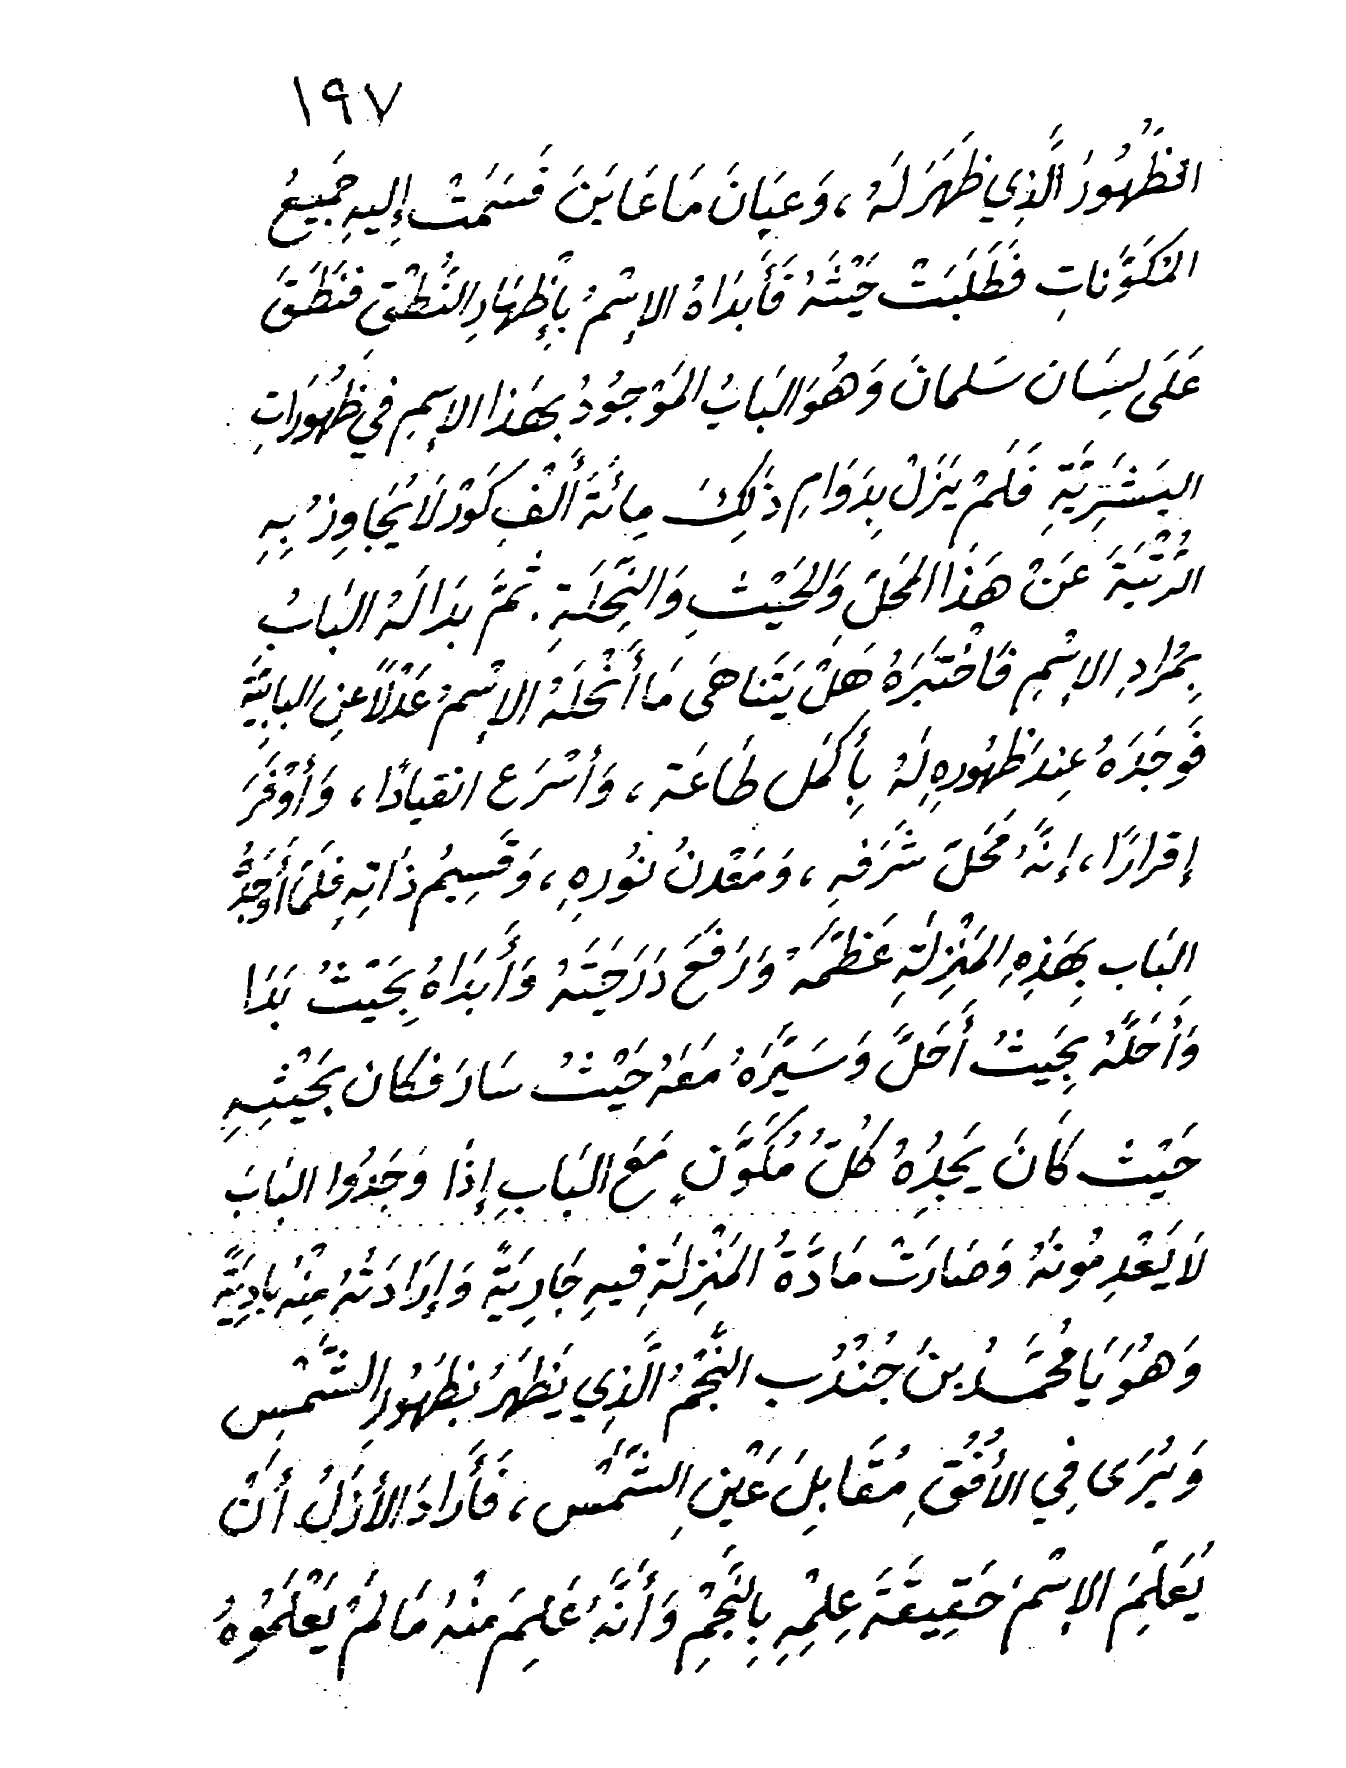 ١٩٧
الظُهُورُ الَّذِي ظَهَرَ لَهُ ، وَعِيَانَ مَا عَايَنَ فَسَمَتْ إِليهِ جَمِيعُ
المُكَوَّنَاتِ فَطَلَبَتْ حَيْثَهُ فَأَبدَاهُ الإِسْمُ بِإِظِهَارِ النُّطْقِ فَنَطَقَ
عَلَى لِسَان سَلمانَ وَهُوَ البَابُ المَوْجُوْدُ بِهَذا الإسمِ في ظُهُوَراتِ
البَشَرِيَّةِ فَلَمْ يَزَلْ بِدَوَامِ ذَلِكَ مِائَةَ أَلْفِ كَوْرٍ لاَ يُجَاوِزُ بِهِ
الرُّتْبَةَ عَنْ هَذَا المَحَلِّ وَالحَيْثِ وَالنِّحْلَةِ . ثُمَّ بدَا لَهُ البَابُ
بِمُرَادِ الإِسْمِ فَاخْتَبَرَهُ هَلْ يَتَنَاهَى مَا أَنْحَلَهُ الإِسْمُ عَدْلاً عنِ البابيَّةِ
فَوَجَدَهُ عِندَ ظُهُورِهِ لَهُ بِأَكمَل طَاعَة ، وَأسْرَع انقيادًا ، وَأوْفَرَ
إقرارًا ، إنَّهُ مَحَلّ شَرَفِهِ ، وَمَعْدنُ نوُرِهِ ، وَقَسِيمُ ذَاتِهِ فَلَمَّا أَوَجَدَهُ
البَاب بِهَذِهِ المَنْزِلَةِ عَظَّمَهُ وَرَفَعَ دَرَجَتَهُ وَأَبدَاهُ بِحَيْثُ بَدَا
وَأَحَلَّهُ بِحَيثُ أَحَلَّ وَسَيَّرَهُ مَعَهُ حَيْثُ سَارَ فكان بَحَيْثِهِ
حَيْث كَانَ يَجِدُهُ كُلُّ مُكَوَّنٍ مَعَ البَابِ إِذَا وَجَدُوا البَابَ
لاَ يَعْدِمُونَهُ وَصَارَتْ مَادَّةُ المَنْزِلَةِ فِيهِ جَارِيَةً وَإِرَادَتُهُ مِنْهُ بَادِيَةً
وَهُوَ يَا مُحَمَّدُ بنَ جُنْدُب النَّجْمُ الَّذِي يَظهَرُ بِظهُوُرِ الشَّمْسِ
وَيُرَى فِي الأُفُقِ مُقَابِلَ عَيْنِ الشَّمْسِ ، فَأَرادَ الأَزَلُ أَنْ
يُعَلِّمَ الإسْمَ حَقِيقَةَ عِلِمْهِ بِالنَّجْمِ وَأَنَّهُ عَلِمَ مِنْهُ مَا لَمْ يَعْلَمُوهُ